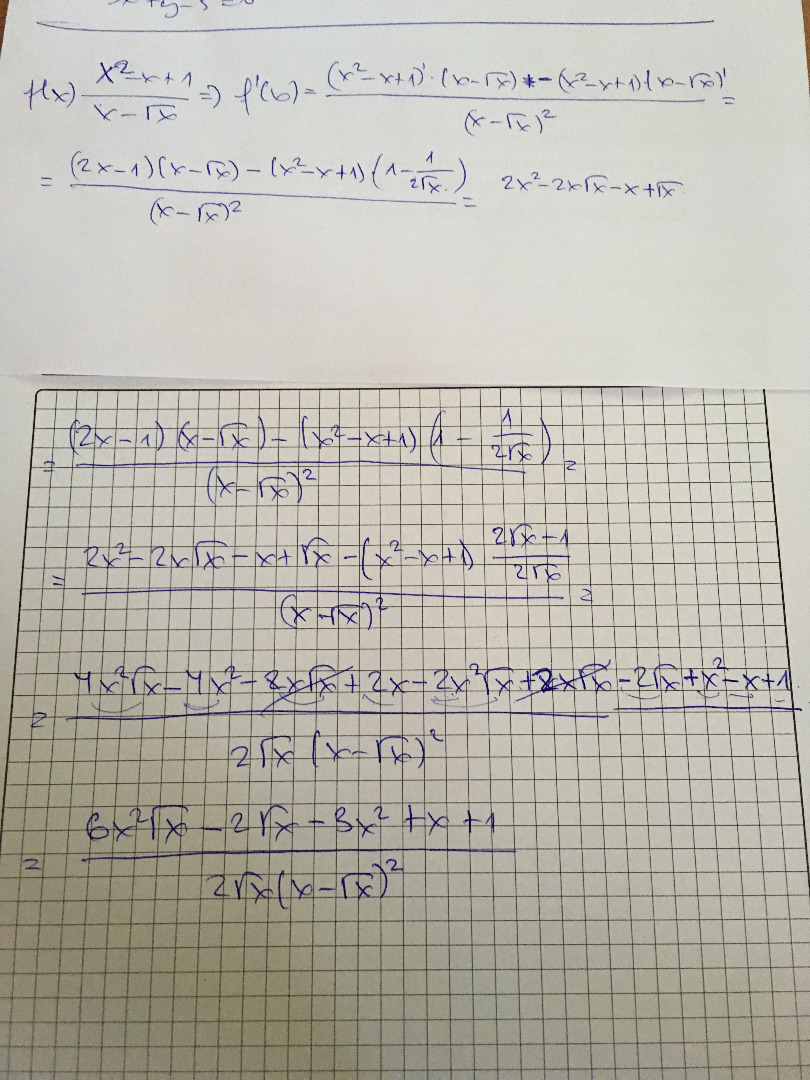 f(x) \frac{x^2-x+1}{x-\sqrt{x}} => f'(x) = \frac{(x^2-x+1)' \cdot (x-\sqrt{x}) - (x^2-x+1)(x-\sqrt{x})'}{(x-\sqrt{x})^2} =
= \frac{(2x-1)(x-\sqrt{x}) - (x^2-x+1)(1-\frac{1}{2\sqrt{x}})}{(x-\sqrt{x})^2} = 2x^2-2x\sqrt{x}-x+\sqrt{x}
= \frac{(2x-1)(x-\sqrt{x}) - (x^2-x+1)(1-\frac{1}{2\sqrt{x}})}{(x-\sqrt{x})^2} =
= \frac{2x^2-2x\sqrt{x}-x+\sqrt{x}-(x^2-x+1)\frac{2\sqrt{x}-1}{2\sqrt{x}}}{(x-\sqrt{x})^2} =
= \frac{4x^2\sqrt{x}-4x^2-2x\sqrt{x}+2x-2x^2\sqrt{x}+2x\sqrt{x}-2\sqrt{x}+x^2-x+1}{2\sqrt{x}(x-\sqrt{x})^2}
= \frac{6x^2\sqrt{x}-2\sqrt{x}-3x^2+x+1}{2\sqrt{x}(x-\sqrt{x})^2}